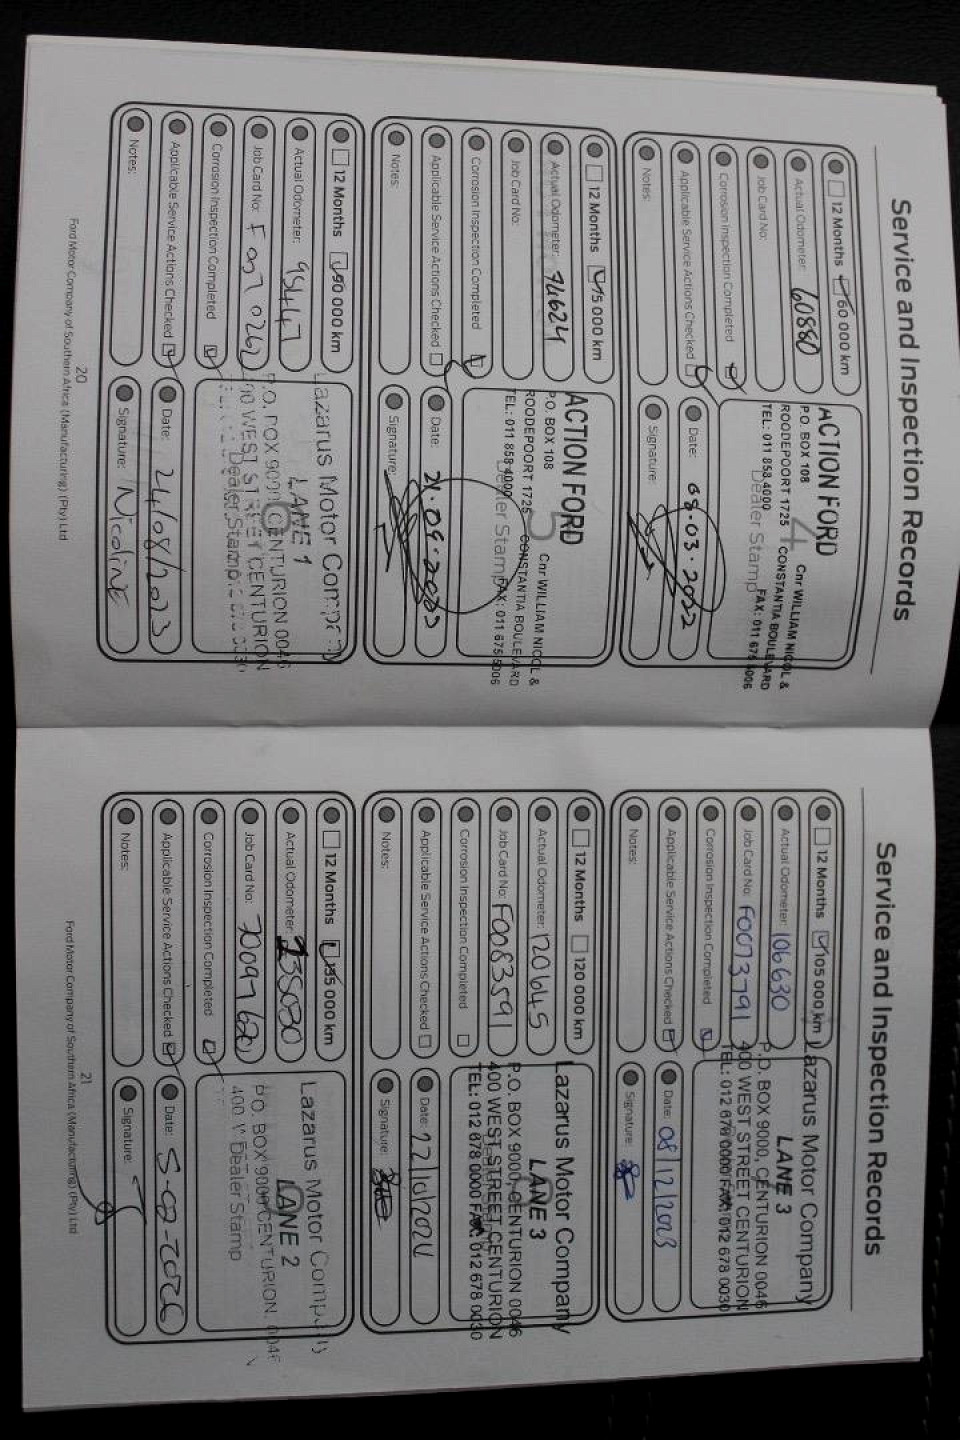 Service and Inspection Records
12 Months 60 000 km
Actual Odometer: 60880
Job Card No:
Corrosion Inspection Completed
Applicable Service Actions Checked
Notes:
ACTION FORD
P.O. BOX 108 Cnr WILLIAM NICOL &
ROODEPOORT 1725 CONSTANTIA BOULEVARD
TEL: 011 858 4000 FAX: 011 675 5006
4
Dealer Stamp
Date: 08.03.2022
Signature:
12 Months 75 000 km
Actual Odometer: 74624
Job Card No:
Corrosion Inspection Completed
Applicable Service Actions Checked
Notes:
ACTION FORD
P.O. BOX 108 Cnr WILLIAM NICOL &
ROODEPOORT 1725 CONSTANTIA BOULEVARD
TEL: 011 858 4000 FAX: 011 675 5006
5
Dealer Stamp
Date: 21.09.2022
Signature:
12 Months 90 000 km
Actual Odometer: 95447
Job Card No:
Corrosion Inspection Completed
Applicable Service Actions Checked
Notes:
Lazarus Motor Company
LANE 1
P.O. BOX 9000 CENTURION 0046
400 WEST STREET CENTURION
6
Dealer Stamp
Date: 24/08/2023
Signature: Nicoline
20
Ford Motor Company of Southern Africa (Manufacturing) (Pty) Ltd
Service and Inspection Records
12 Months 105 000 km
Actual Odometer: 106630
Job Card No: F0073791
Corrosion Inspection Completed
Applicable Service Actions Checked
Notes:
Lazarus Motor Company
LANE 3
P.O. BOX 9000, CENTURION 0046
400 WEST STREET CENTURION
TEL: 012 678 0000 FAX: 012 678 0030
Date: 08/12/2023
Signature:
12 Months 120 000 km
Actual Odometer: 120645
Job Card No: F0083591
Corrosion Inspection Completed
Applicable Service Actions Checked
Notes:
Lazarus Motor Company
LANE 3
P.O. BOX 9000, CENTURION 0046
400 WEST STREET CENTURION
TEL: 012 678 0000 FAX: 012 678 0030
Date: 22/10/2024
Signature:
12 Months 135 000 km
Actual Odometer: 135080
Job Card No:
Corrosion Inspection Completed
Applicable Service Actions Checked
Notes:
Lazarus Motor Company
LANE 2
P.O. BOX 9000 CENTURION, 0046
400
Dealer Stamp
Date:
Signature:
21
Ford Motor Company of Southern Africa (Manufacturing) (Pty) Ltd